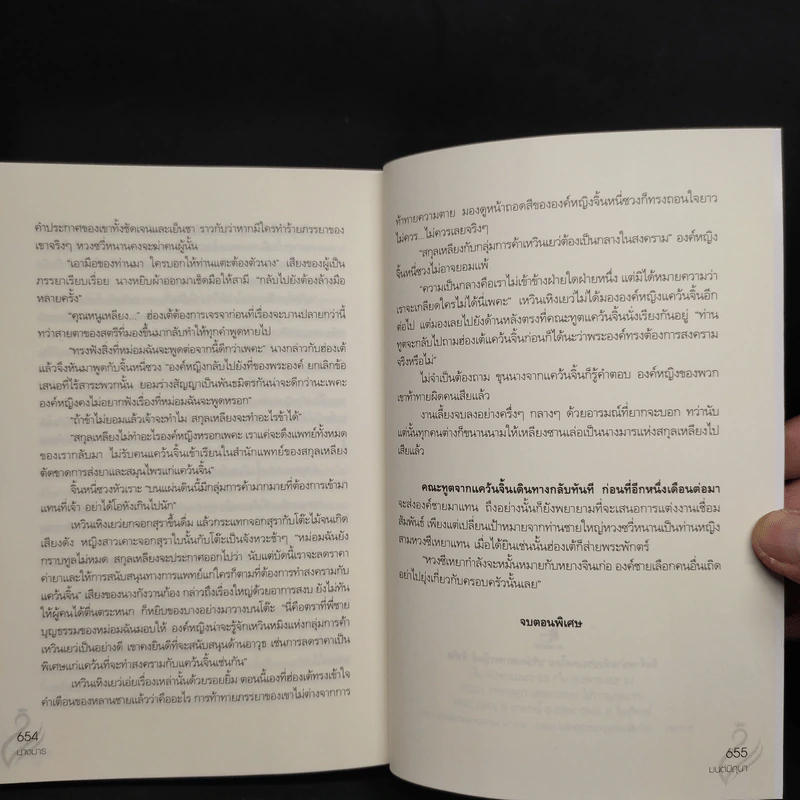 คำประกาศของเขาทั้งชัดเจนและเย็นชา ราวกับว่าหากมีใครทำร้ายภรรยาของ
เขาจริงๆ หวงซวี่หนานคงจะฆ่าคนผู้นั้น
“เอามือของท่านมา ใครบอกให้ท่านแตะต้องตัวนาง” เสียงของผู้เป็น
ภรรยาเรียบเรื่อย นางหยิบผ้าออกมาเช็ดมือให้สามี “กลับไปยังต้องล้างมือ
หลายครั้ง”
“คุณหนูเหลียง...” ฮ่องเต้ต้องการเจรจาก่อนที่เรื่องจะบานปลายกว่านี้
ทว่าสายตาของสตรีที่มองขึ้นมากลับทำให้ทุกคำพูดหายไป
“ทรงฟังสิ่งที่หม่อมฉันจะพูดต่อจากนี้ดีกว่าเพคะ” นางกล่าวกับฮ่องเต้
แล้วจึงหันมาพูดกับจิ้นหนี่ชวง “องค์หญิงกลับไปยังที่ของพระองค์ ยกเลิกข้อ
เสนอที่ไร้สาระพวกนั้น ยอมร่างสัญญาเป็นพันธมิตรกันน่าจะดีกว่านะเพคะ
องค์หญิงคงไม่อยากฟังเรื่องที่หม่อมฉันจะพูดหรอก”
“ถ้าข้าไม่ยอมแล้วเจ้าจะทำไม สกุลเหลียงจะทำอะไรข้าได้”
“สกุลเหลียงไม่ทำอะไรองค์หญิงหรอกเพคะ เราแค่จะดึงแพทย์ทั้งหมด
ของเรากลับมา ไม่รับคนแคว้นจิ้นเข้าเรียนในสำนักแพทย์ของสกุลเหลียง
ตัดขาดการส่งยาและสมุนไพรแก่แคว้นจิ้น”
จิ้นหนี่ชวงหัวเราะ “บนแผ่นดินนี้มีกลุ่มการค้ามากมายที่ต้องการเข้ามา
แทนที่เจ้า อย่าได้โอหังเกินไปนัก”
เหวินเหิงเยว่ยกจอกสุราขึ้นดื่ม แล้วกระแทกจอกสุรากับโต๊ะไม้จนเกิด
เสียงดัง หญิงสาวเคาะจอกสุราใบนั้นกับโต๊ะเป็นจังหวะช้าๆ “หม่อมฉันยัง
กราบทูลไม่หมด สกุลเหลียงจะประกาศออกไปว่า นับแต่บัดนี้เราจะลดราคา
ค่ายาและให้การสนับสนุนทางการแพทย์แก่ใครก็ตามที่ต้องการทำสงครามกับ
แคว้นจิ้น” เสียงของนางกังวานก้อง กล่าวถึงเรื่องใหญ่ด้วยอาการสงบ ยังไม่ทัน
ให้ผู้คนได้ตื่นตระหนก ก็หยิบของบางอย่างมาวางบนโต๊ะ “นี่คือตราที่พี่ชาย
บุญธรรมของหม่อมฉันมอบให้ องค์หญิงน่าจะรู้จักเหวินหมิงแห่งกลุ่มการค้า
เหวินเยว่เป็นอย่างดี เขาคงยินดีที่จะสนับสนุนด้านอาวุธ เช่นการลดราคาเป็น
พิเศษแก่แคว้นที่จะทำสงครามกับแคว้นจิ้นเช่นกัน”
เหวินเหิงเยว่เอ่ยเรื่องเหล่านั้นด้วยรอยยิ้ม ตอนนี้เองที่ฮ่องเต้ทรงเข้าใจ
คำเตือนของหลานชายแล้วว่าคืออะไร การท้าทายภรรยาของเขาไม่ต่างจากการ
654
นางมาร
ท้าทายความตาย มองดูหน้าถอดสีขององค์หญิงจิ้นหนี่ชวงก็ทรงถอนใจยาว
ไม่ควร...ไม่ควรเลยจริงๆ
“สกุลเหลียงกับกลุ่มการค้าเหวินเยว่ต้องเป็นกลางในสงคราม” องค์หญิง
จิ้นหนี่ชวงไม่อาจยอมแพ้
“ความเป็นกลางคือเราไม่เข้าข้างฝ่ายใดฝ่ายหนึ่ง แต่มิได้หมายความว่า
เราจะเกลียดใครไม่ได้นี่เพคะ” เหวินเหิงเยว่ไม่ได้มององค์หญิงแคว้นจิ้นอีก
ต่อไป แต่มองเลยไปยังด้านหลังตรงที่คณะทูตแคว้นจิ้นนั่งเรียงกันอยู่ “ท่าน
ทูตจะกลับไปถามฮ่องเต้แคว้นจิ้นก่อนก็ได้นะว่าพระองค์ทรงต้องการสงคราม
จริงหรือไม่”
ไม่จำเป็นต้องถาม ขุนนางจากแคว้นจิ้นก็รู้คำตอบ องค์หญิงของพวก
เขาท้าทายผิดคนเสียแล้ว
งานเลี้ยงจบลงอย่างครึ่งๆ กลางๆ ด้วยอารมณ์ที่ยากจะบอก ทว่านับ
แต่นั้นทุกคนต่างก็ขนานนามให้เหลียงซานเล่อเป็นนางมารแห่งสกุลเหลียงไป
เสียแล้ว
คณะทูตจากแคว้นจิ้นเดินทางกลับทันที ก่อนที่อีกหนึ่งเดือนต่อมา
จะส่งองค์ชายมาแทน ถึงอย่างนั้นก็ยังพยายามที่จะเสนอการแต่งงานเชื่อม
สัมพันธ์ เพียงแต่เปลี่ยนเป้าหมายจากท่านชายใหญ่หวงซวี่หนานเป็นท่านหญิง
สามหวงซีเหยาแทน เมื่อได้ยินเช่นนั้นฮ่องเต้ก็ส่ายพระพักตร์
“หวงซีเหยากำลังจะหมั้นหมายกับหยางจินก่อ องค์ชายเลือกคนอื่นเถิด
อย่าไปยุ่งเกี่ยวกับครอบครัวนั้นเลย”
จบตอนพิเศษ
655
มนตมีศุนา